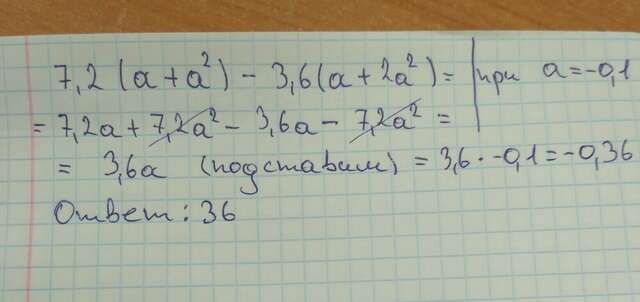 7,2(a+a²) - 3,6(a+2a²) = | при a=-0,1
= 7,2a + 7,2a² - 3,6a - 7,2a² =
= 3,6a (подставим) = 3,6 · -0,1 = -0,36
Ответ: 36